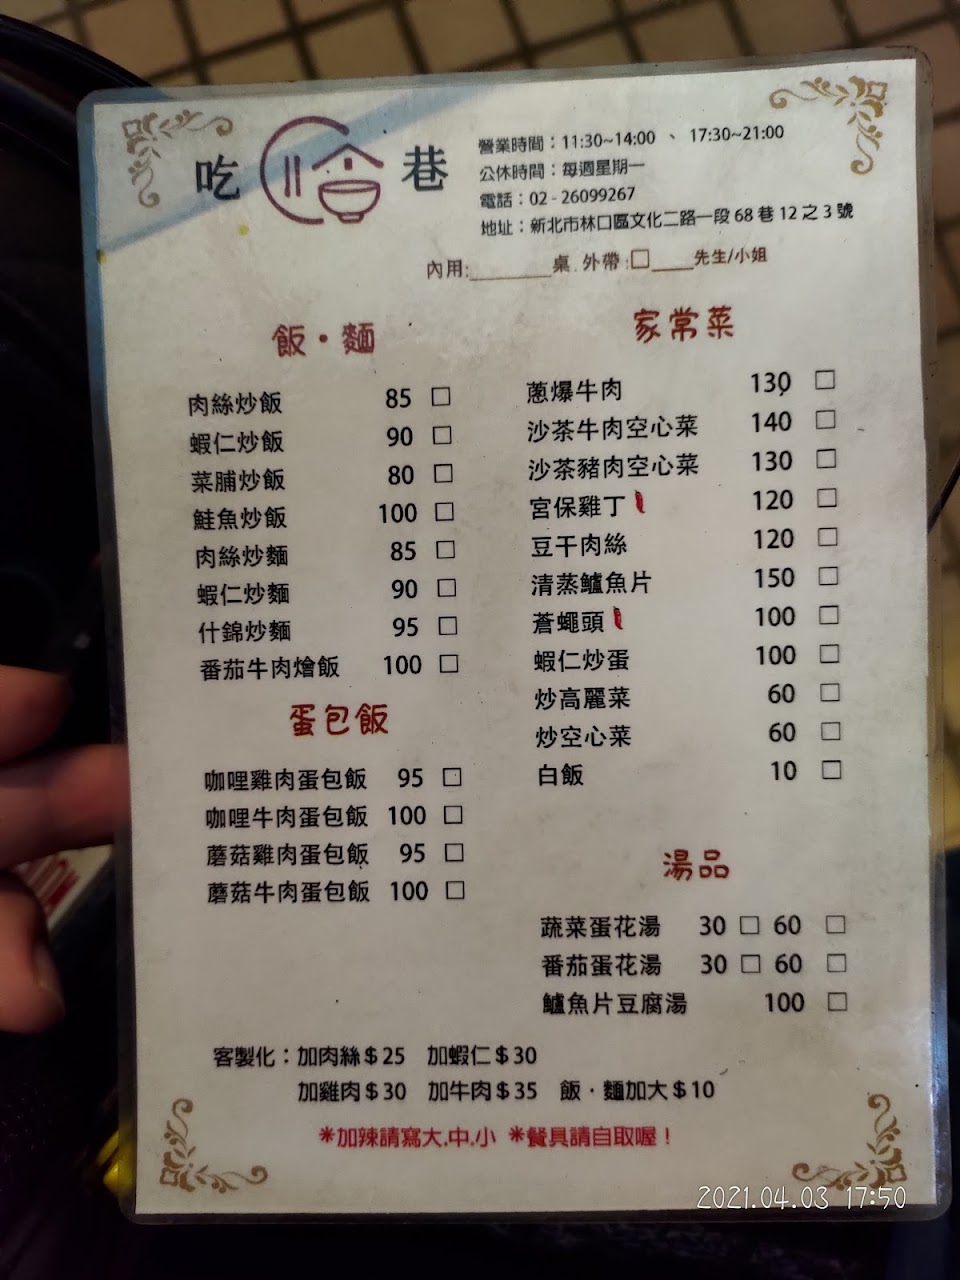 吃 巷
營業時間：11:30~14:00 、 17:30~21:00
公休時間：每週星期一
電話：02 - 26099267
地址：新北市林口區文化二路一段 68 巷 12 之 3 號
內用:________桌 外帶:□____先生/小姐
飯・麵
肉絲炒飯 85 □
蝦仁炒飯 90 □
菜脯炒飯 80 □
鮭魚炒飯 100 □
肉絲炒麵 85 □
蝦仁炒麵 90 □
什錦炒麵 95 □
番茄牛肉燴飯 100 □
蛋包飯
咖哩雞肉蛋包飯 95 □
咖哩牛肉蛋包飯 100 □
蘑菇雞肉蛋包飯 95 □
蘑菇牛肉蛋包飯 100 □
家常菜
蔥爆牛肉 130 □
沙茶牛肉空心菜 140 □
沙茶豬肉空心菜 130 □
宮保雞丁 120 □
豆干肉絲 120 □
清蒸鱸魚片 150 □
蒼蠅頭 100 □
蝦仁炒蛋 100 □
炒高麗菜 60 □
炒空心菜 60 □
白飯 10 □
湯品
蔬菜蛋花湯 30 □ 60 □
番茄蛋花湯 30 □ 60 □
鱸魚片豆腐湯 100 □
客製化：加肉絲＄25 加蝦仁＄30
加雞肉＄30 加牛肉＄35 飯・麵加大＄10
*加辣請寫大.中.小 *餐具請自取喔！
2021.04.03 17:50